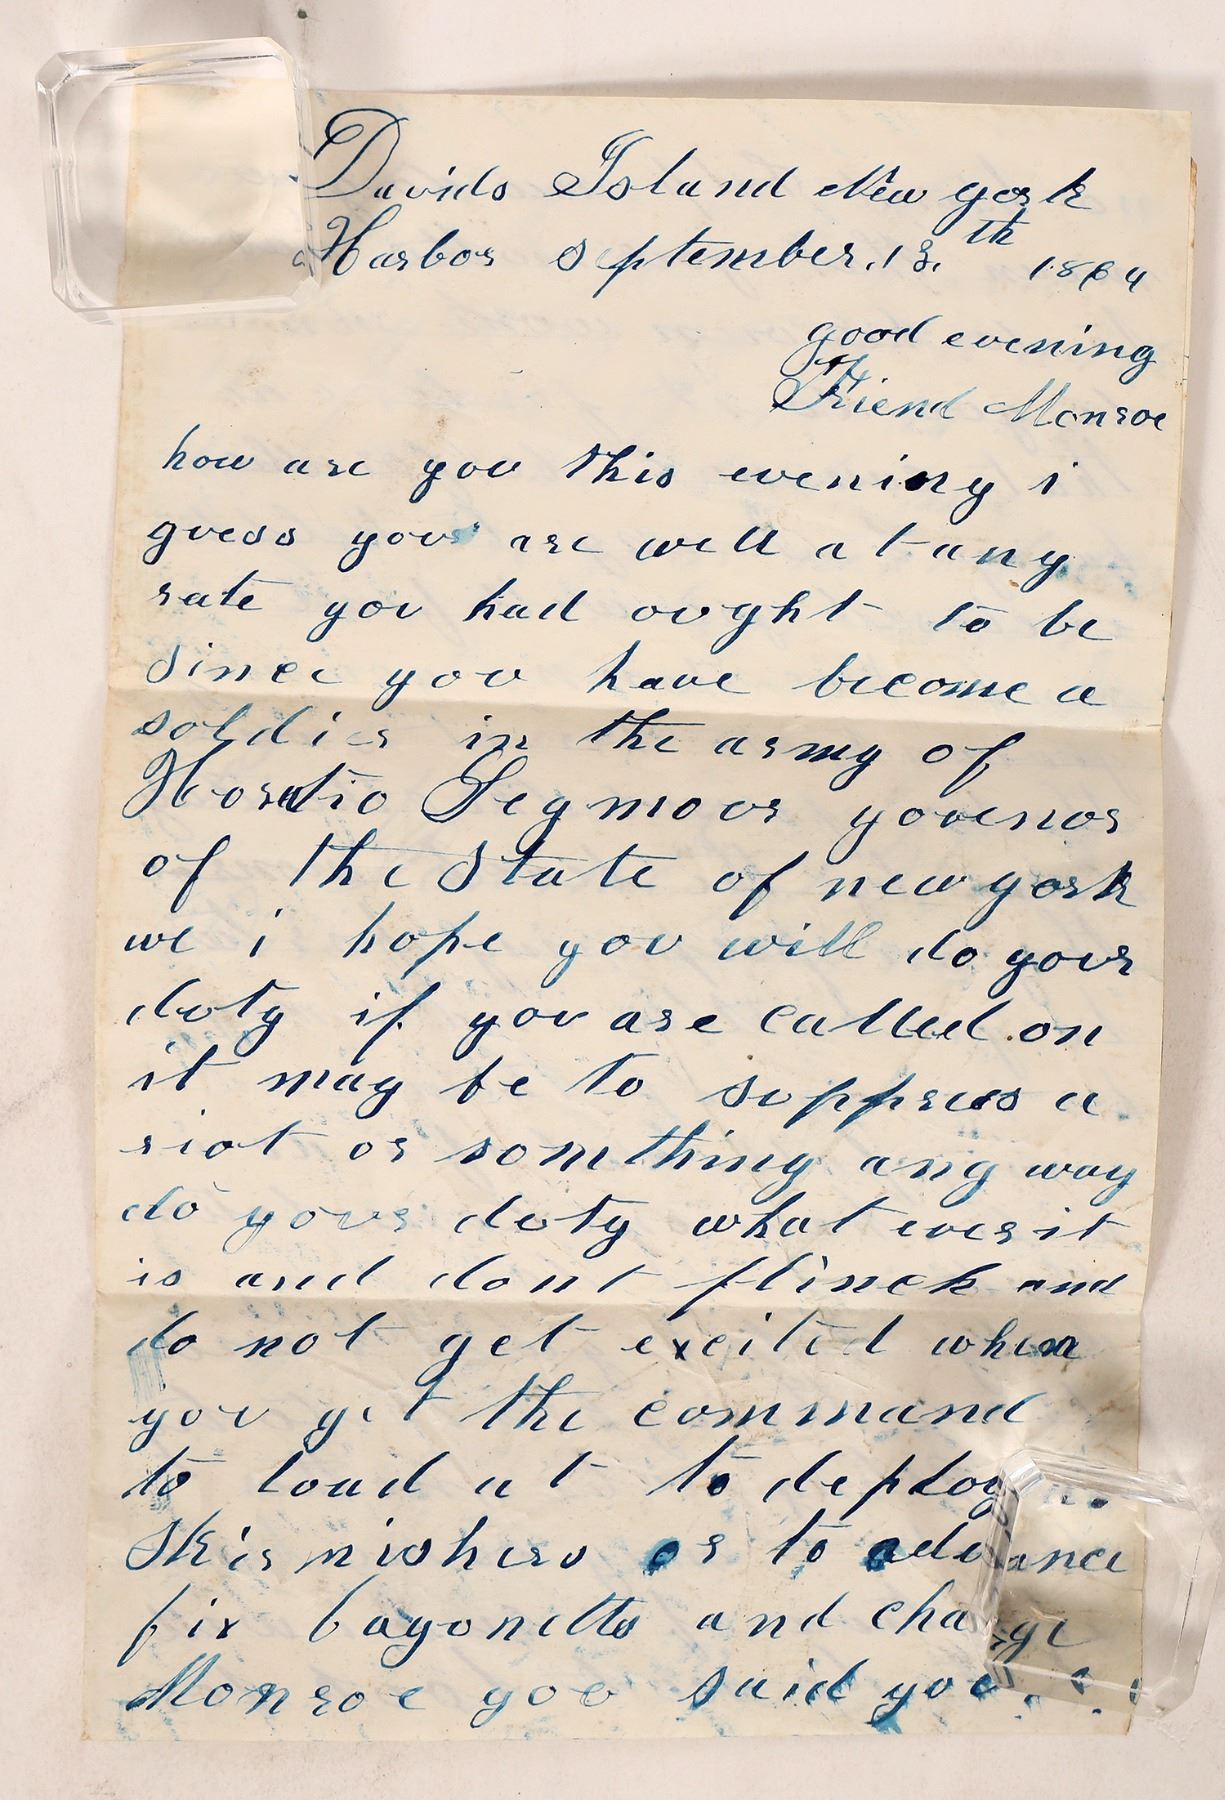 Davids Island New york
Harbor September. 13.th 1864
good evening
Friend Monroe
how are you this evening i
guess your are well at any
rate you had ought to be
since you have become a
soldier in the army of
Horatio Seymour govenor
of the State of new york
we i hope you will do your
duty if you are called on
it may be to suppress a
riot or something any way
do your duty what ever it
is and dont flinch and
do not get excited when
you get the command
to load at to deploy
Skirmishers or to advance
fix bayonetts and charge
Monroe you said you